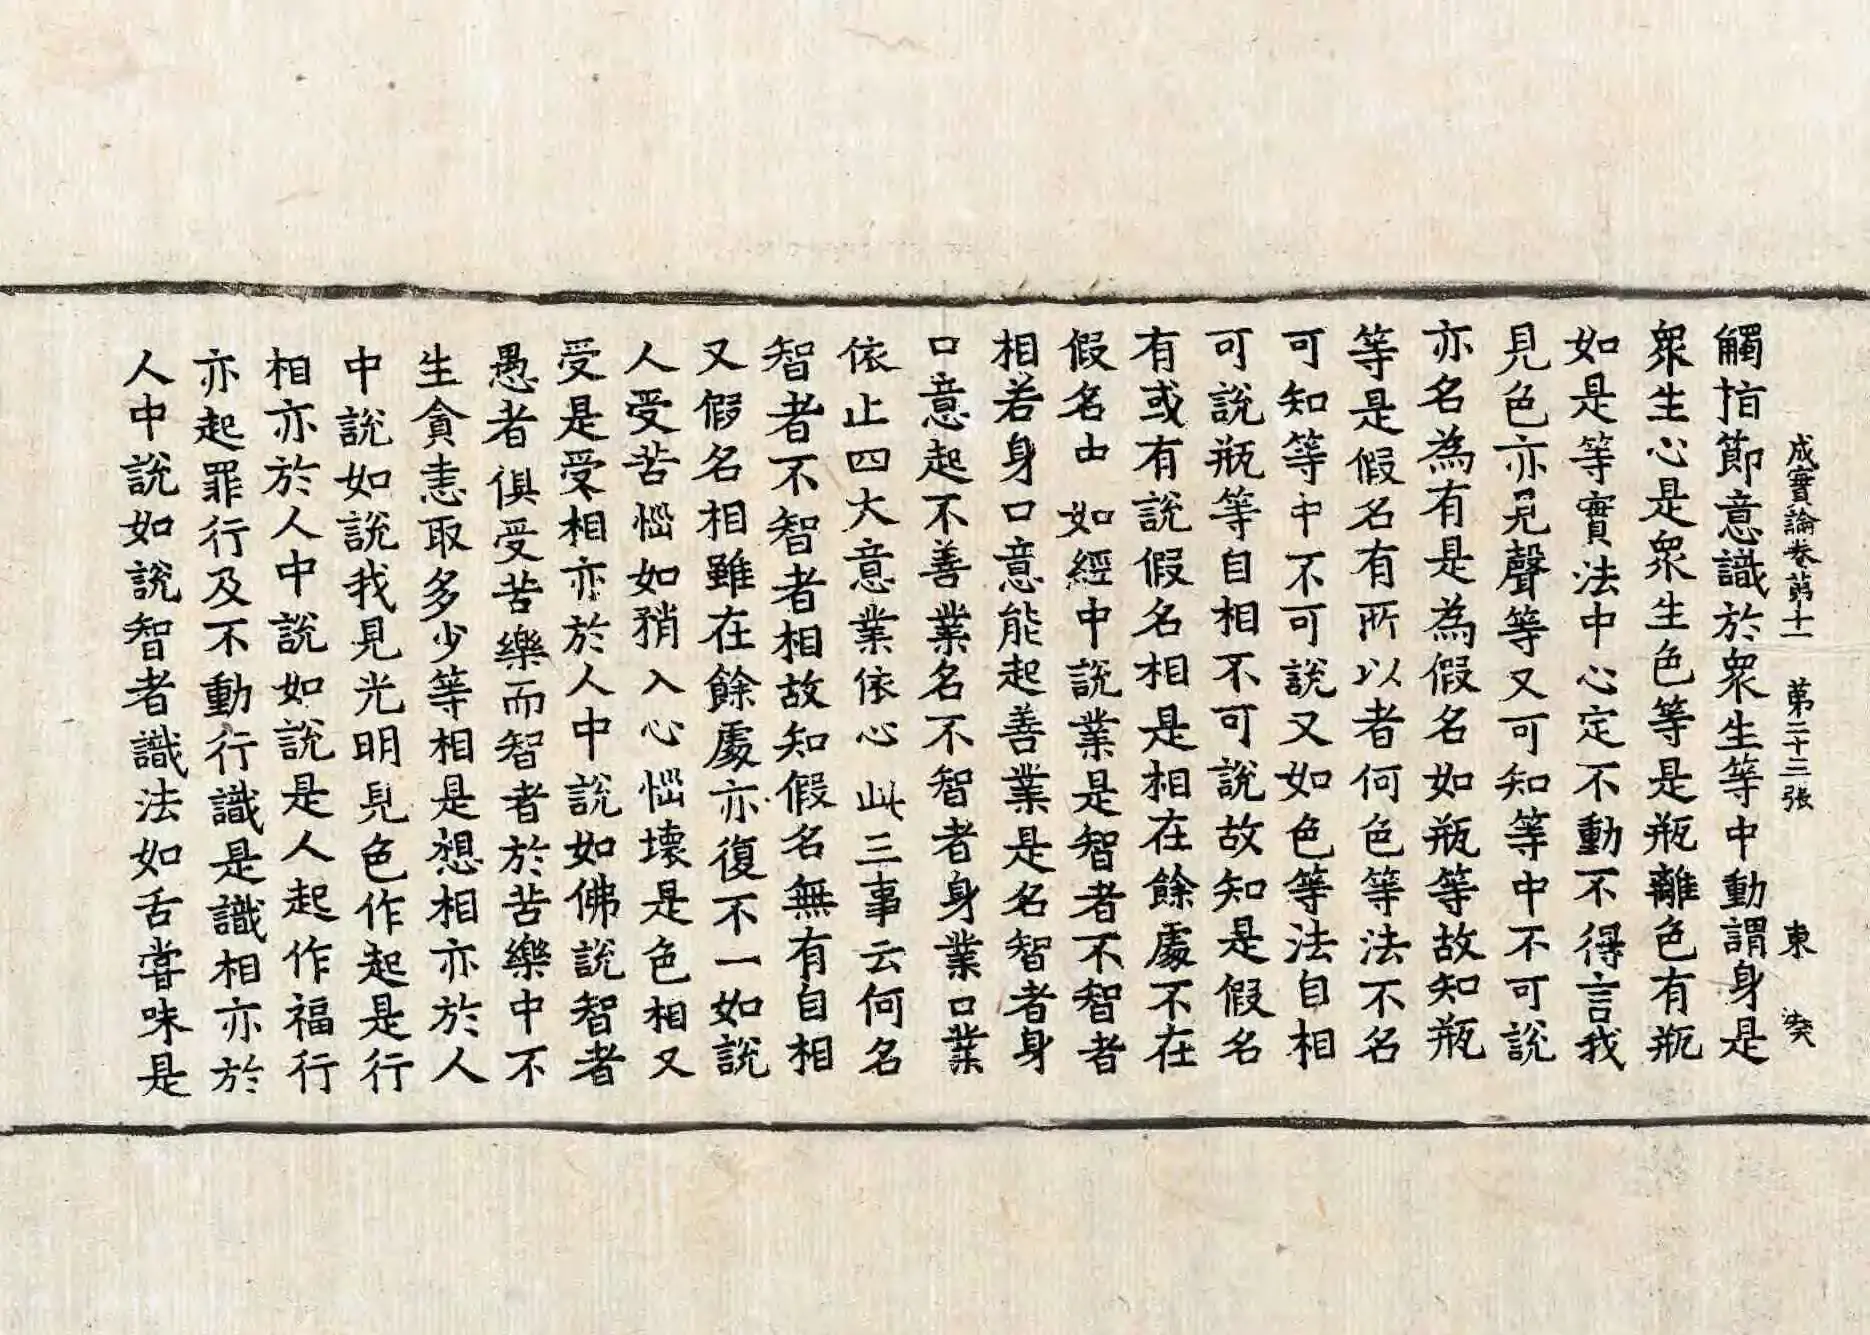 成實論卷苐十一 苐二十三張 東 㳟
觸指節意識於衆生等中動謂身是
衆生心是衆生色等是瓶離色有瓶
如是等實法中心定不動不得言我
見色亦見聲等又可知等中不可說
亦名為有是為假名如瓶等故知瓶
等是假名有所以者何色等法不名
可知等中不可說又如色等法自相
可說瓶等自相不可說故知是假名
有或有說假名相是相在餘處不在
假名中如經中說業是智者不智者
相若身口意能起善業是名智者身
口意起不善業名不智者身業口業
依止四大意業依心此三事云何名
智者不智者相故知假名無有自相
又假名相雖在餘處亦復不一如說
人受苦惱如矟入心惱壞是色相又
受是受相亦於人中說如佛說智者
愚者俱受苦樂而智者於苦樂中不
生貪恚取多少等相是想相亦於人
中說如說我見光明見色作起是行
相亦於人中說如說是人起作福行
亦起罪行及不動行識是識相亦於
人中說如說智者識法如舌嘗味是